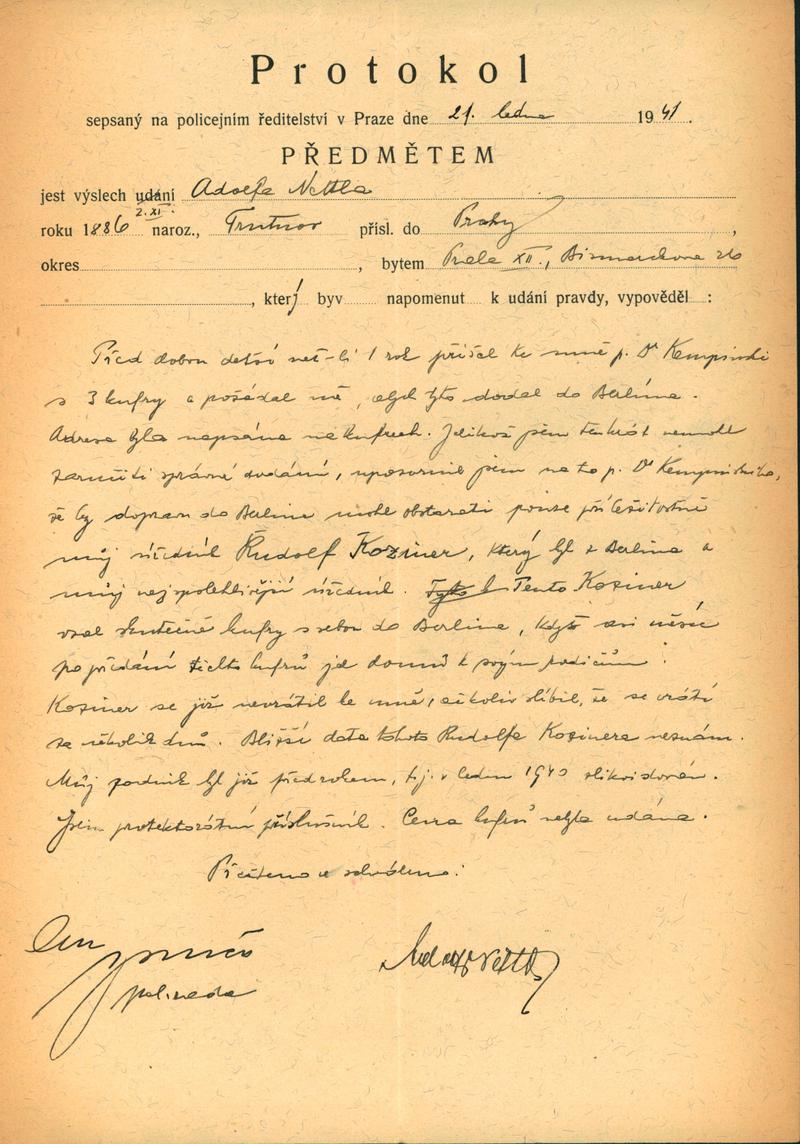 Protokol
sepsaný na policejním ředitelství v Praze dne 21. ledna 1941.
PŘEDMĚTEM
jest výslech udání Adolfa Nettla
2. XI.
roku 1886 naroz., Trutnov přísl. do Prahy,
okres, bytem Praha XII., Bismarckova
, který byv napomenut k udání pravdy, vypověděl :
Před dobou delší než-li 1 rok přišel ke mně p. Dr Kempinski
s 3 kufry a požádal mě, abych tyto dodal do Berlína.
Adresa byla napsána na kufrech. Jelikož jsem tenkrát nemohl
zaručiti správné dodání, upozornil jsem na to p. Dr Kempinskiho,
že by dopravu do Berlína mohl obstarati pouze příležitostně
můj úředník Rudolf Koziner, který byl z Berlína a
můj nejspolehlivější úředník. Tento Koziner
vzal skutečně kufry s sebou do Berlína, když asi měsíc
po přidání těchto kufrů jel domů k svým rodičům.
Koziner se již nevrátil ke mně, ačkoliv slíbil, že se vrátí
za několik dnů. Bližší data tohoto Rudolfa Kozinera neznám.
Můj podnik byl již před rokem, t.j. v lednu 1940 zlikvidován.
Jsem protektorátní příslušník. Cena kufrů nebyla udána.
Přečteno a schváleno:
Adolf Nettl
pol. rada